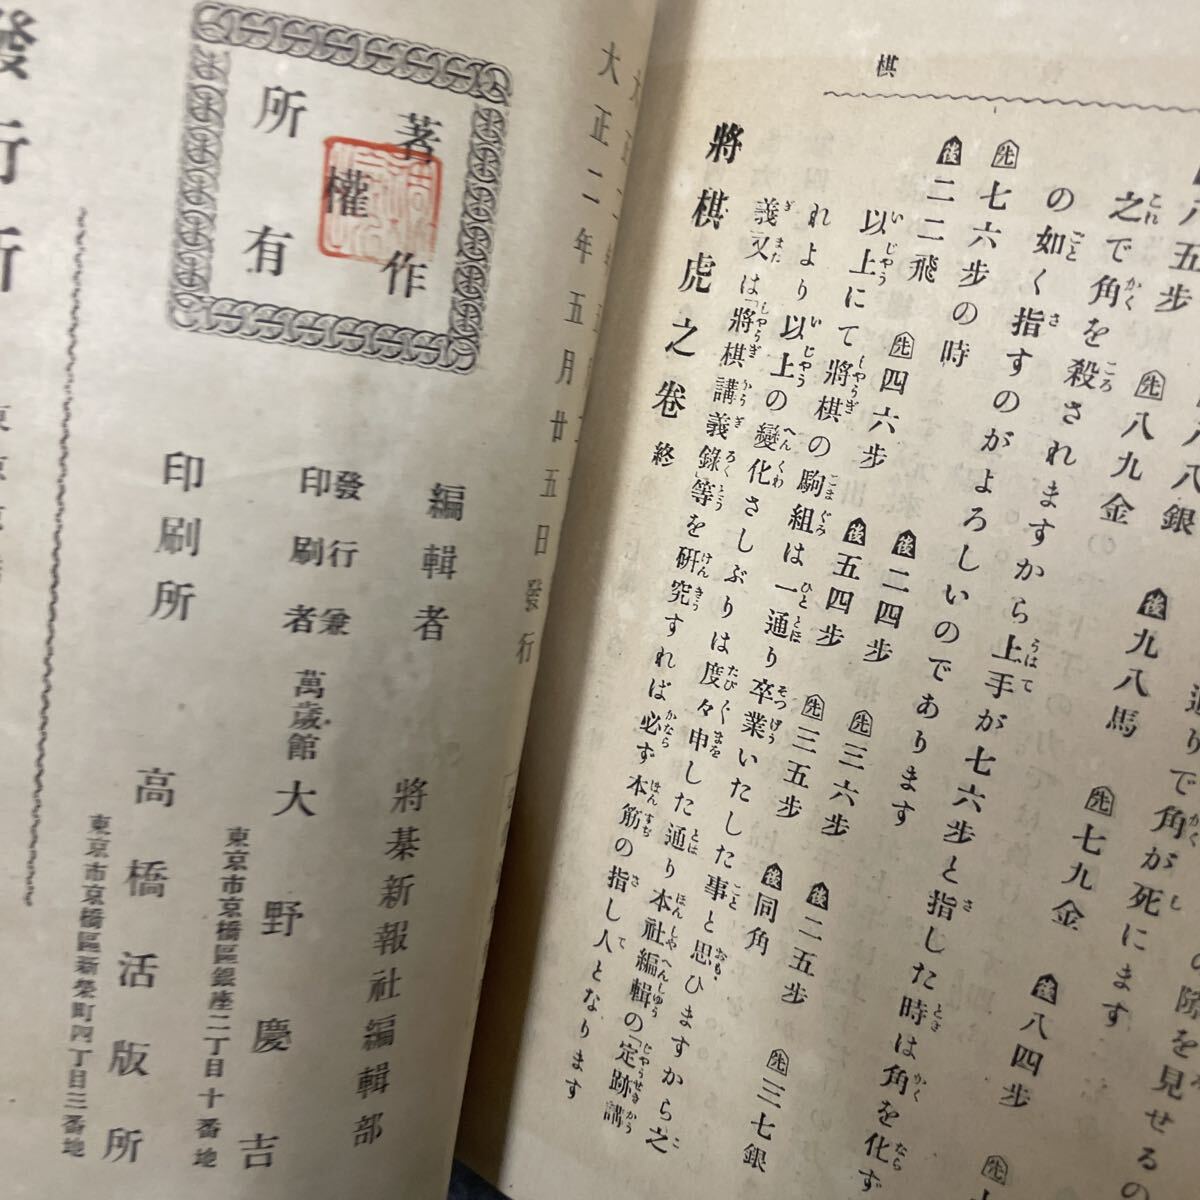 棋
八五歩
八八銀
通りで角が死にます
之で角を殺されますから上手が七六歩と指した時は角を化ず
先八九金
後九八馬
先七九金
後八四歩
の如く指すのがよろしいのであります
先七六歩の時
後二二飛
先四六歩
後二四歩
先三六歩
後二五歩
後五四歩
先三五歩
後同角
先三七銀
以上にて將棋の駒組は一通り卒業いたした事と思ひますから之
れより以上の變化さしぶりは度々申した通り本社編輯の「定跡講
義又は「將棋講義錄」等を研究すれば必ず本筋の指し人となります
將棋虎之卷 終
大正二年五月廿五日發行
著作
權
所有
編輯者
將棊新報社編輯部
發行兼
印刷者
萬歲館
大野慶吉
東京市京橋區銀座二丁目十番地
印刷所
高橋活版所
東京市京橋區新榮町四丁目三番地
發行所